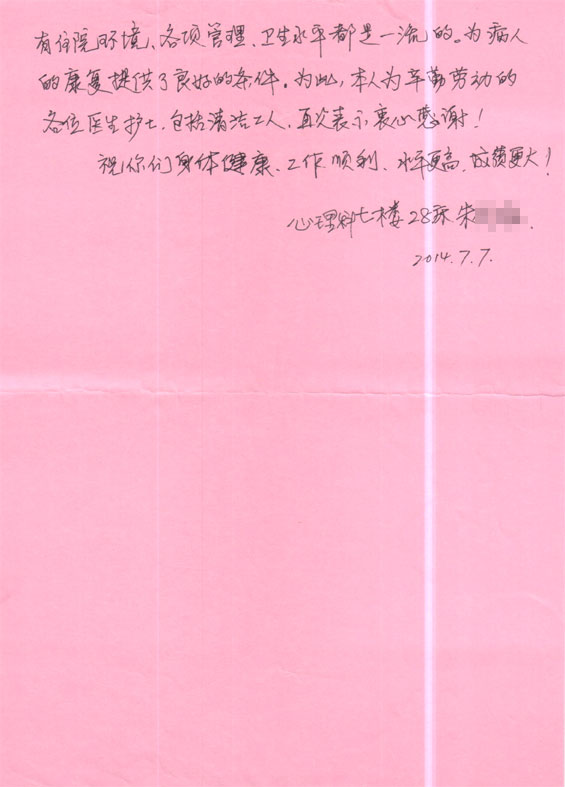 有住院环境、各项管理、卫生水平都是一流的。为病人
的康复提供了良好的条件。为此,本人为辛勤劳动的
各位医生护士,包括清洁工人,再次表示衷心感谢!
祝你们身体健康、工作顺利、水平更高、成绩更大!
心理科七楼28床 朱
2014.7.7.